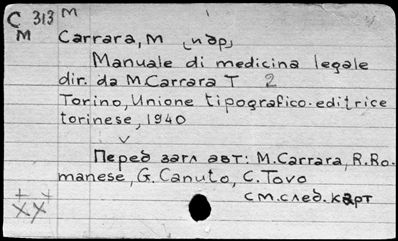 C 313 M
M Carrara, M [и др]
Manuale di medicina legale
dir. da M Carrara T 2
Torino, Unione tipografico-editrice
torinese, 1940
Перед загл авт: M. Carrara, R. Ro-
manese, G. Canuto, C. Tovo
см. след. карт
XX